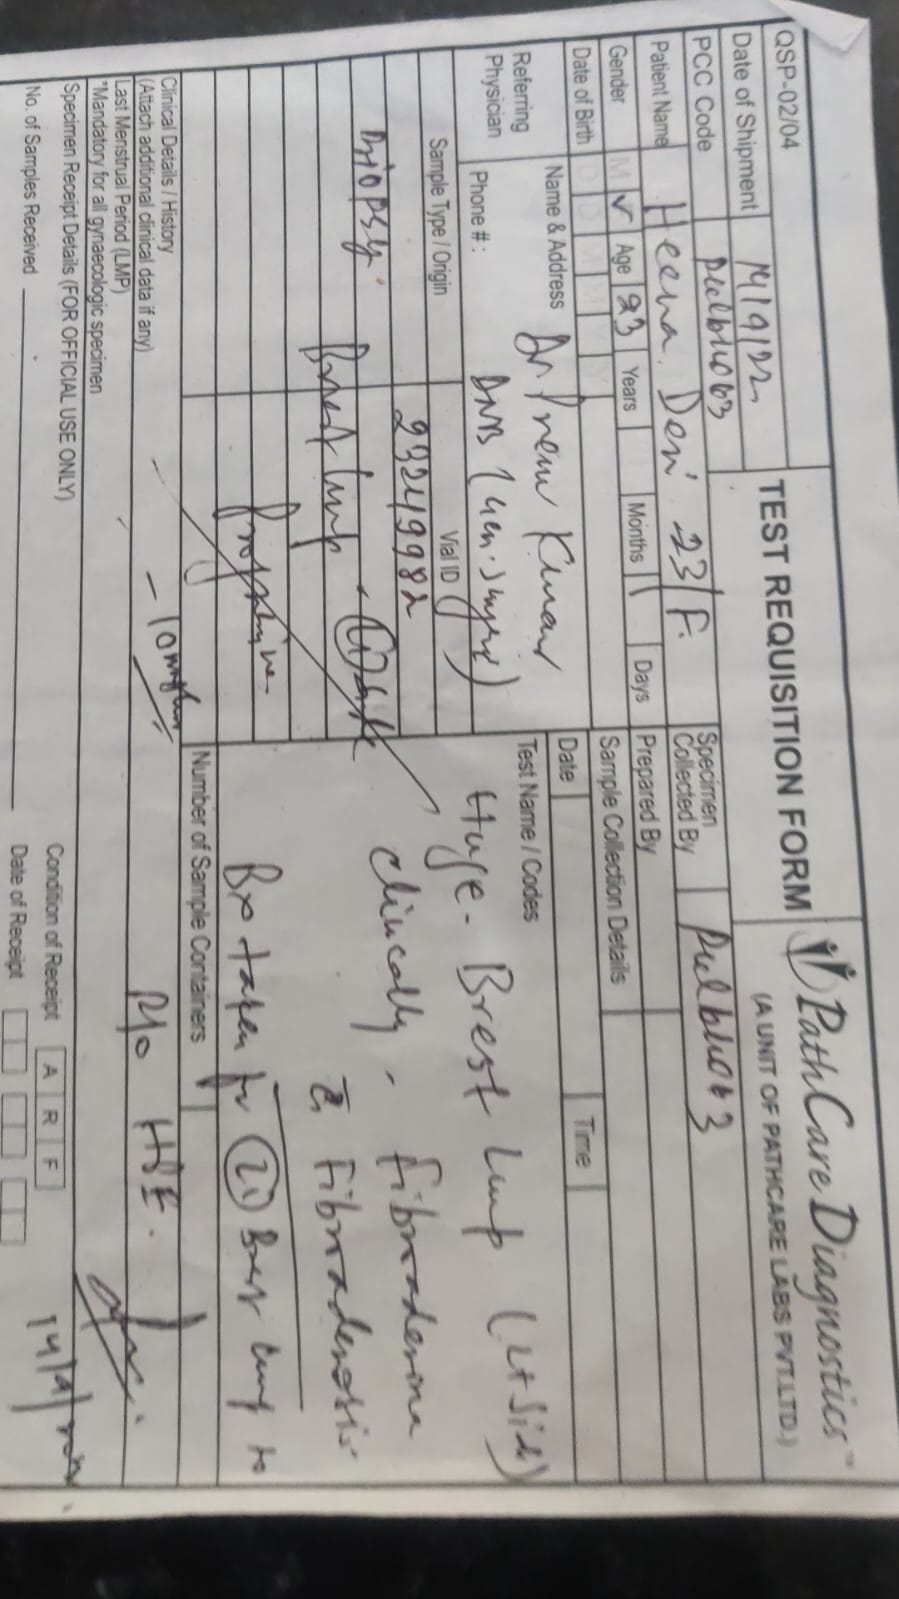 QSP-02/04
TEST REQUISITION FORM
PathCare Diagnostics™
(A UNIT OF PATHCARE LABS PVT.LTD.)
Date of Shipment 14/9/22
PCC Code
Specimen Collected By
Patient Name Heena Devi 23/F.
Prepared By
Gender M ✓ Age 23 Years Months Days
Sample Collection Details
Date of Birth D D M M Y
Date Time
Referring Physician
Name & Address Dr. Prem Kumar
Phone #: DNB (Gen. )
Test Name / Codes
Huge. Brest Lump (Lt Side)
Sample Type / Origin Vial ID
23249982
Biopsy.
clinically, - fibroadenoma
Breast lump
c̄ fibroadenosis
Bx taken for Lt Breast lump to
Number of Sample Containers
Clinical Details / History
(Attach additional clinical data if any)
- 10 months
P/o HPE.
Last Menstrual Period (LMP)
*Mandatory for all gynaecologic specimen
Specimen Receipt Details (FOR OFFICIAL USE ONLY)
Condition of Receipt A R F
14/9/22
No. of Samples Received
Date of Receipt